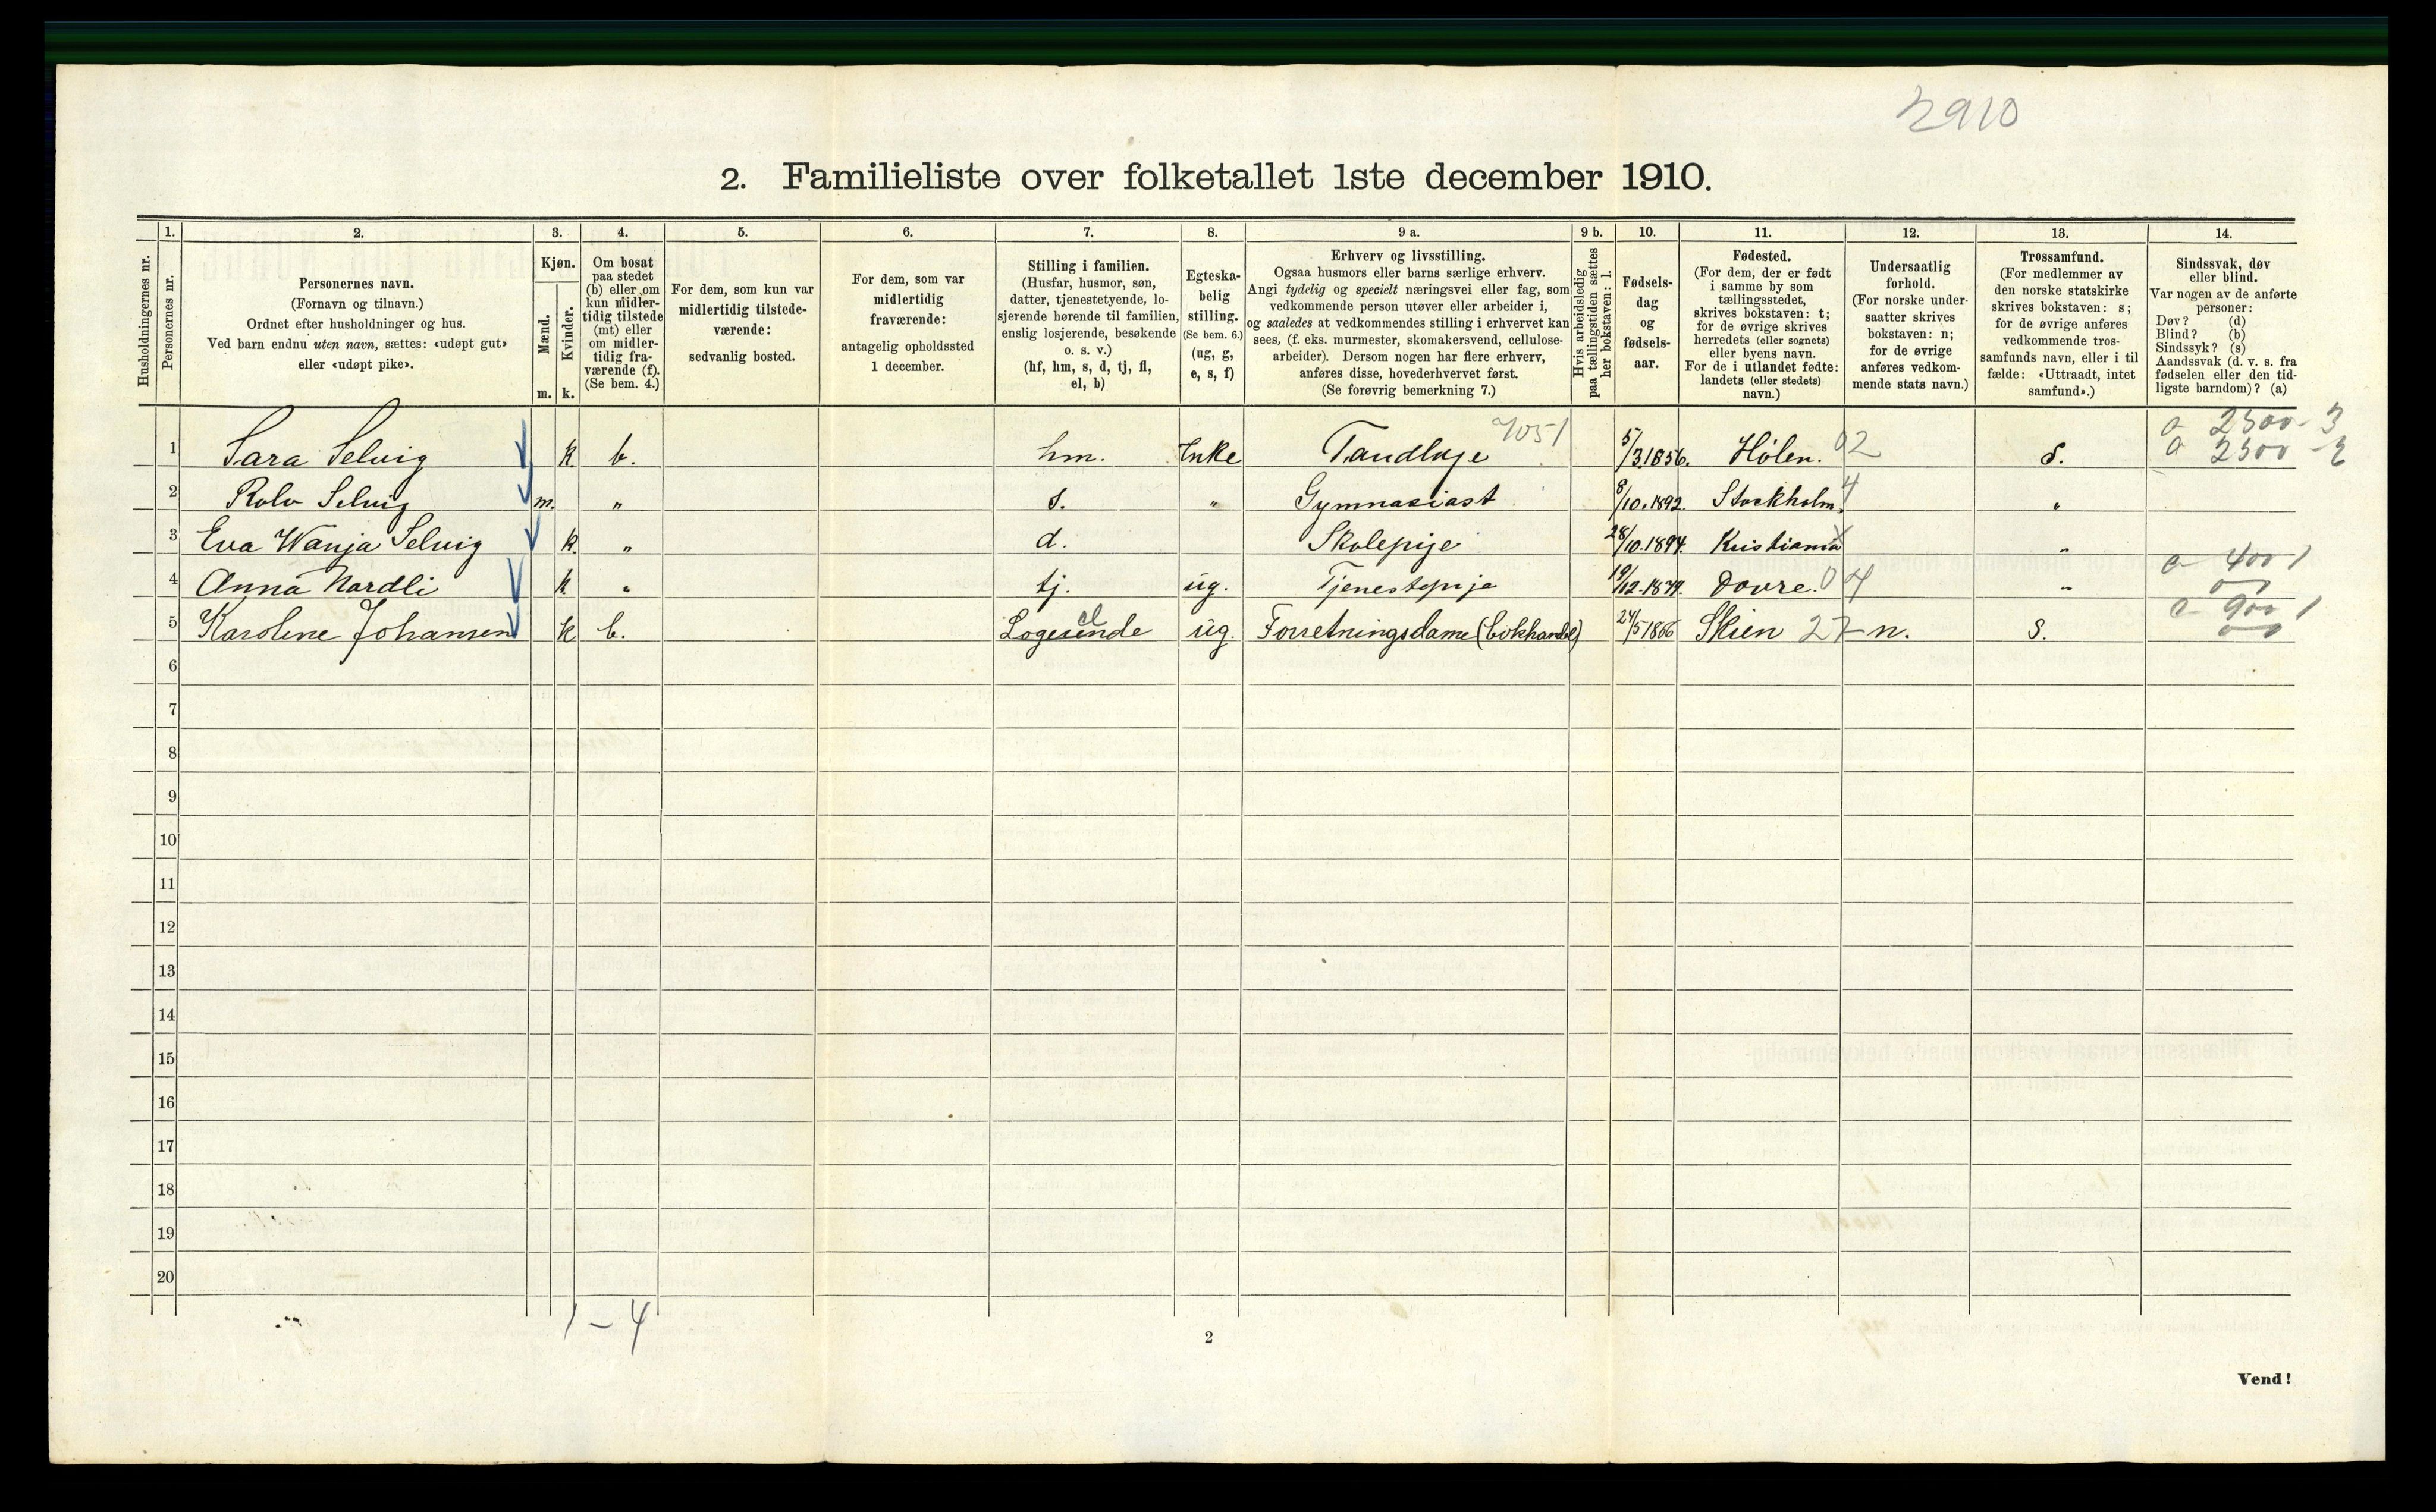 2910
2. Familieliste over folketallet 1ste december 1910.
Husholdningernes nr.
1.
Personernes nr.
2.
Personernes navn.
(Fornavn og tilnavn.)
Ordnet efter husholdninger og hus.
Ved barn endnu uten navn, sættes: «udøpt gut»
eller «udøpt pike».
3.
Kjøn.
Mænd.
Kvinder.
m. k.
4.
Om bosat
paa stedet
(b) eller om
kun midler-
tidig tilstede
(mt) eller
om midler-
tidig fra-
værende (f).
(Se bem. 4.)
5.
For dem, som kun var
midlertidig tilstede-
værende:
sedvanlig bosted.
6.
For dem, som var
midlertidig
fraværende:
antagelig opholdssted
1 december.
7.
Stilling i familien.
(Husfar, husmor, søn,
datter, tjenestetyende, lo-
sjerende hørende til familien,
enslig losjerende, besøkende
o. s. v.)
(hf, hm, s, d, tj, fl,
el, b)
8.
Egteska-
belig
stilling.
(Se bem. 6.)
(ug, g,
e, s, f)
9 a.
Erhverv og livsstilling.
Ogsaa husmors eller barns særlige erhverv.
Angi tydelig og specielt næringsvei eller fag, som
vedkommende person utøver eller arbeider i,
og saaledes at vedkommendes stilling i erhvervet kan
sees, (f. eks. murmester, skomakersvend, cellulose-
arbeider). Dersom nogen har flere erhverv,
anføres disse, hovederhvervet først.
(Se forøvrig bemerkning 7.)
9 b.
Hvis arbeidsledig
paa tællingstiden sættes
her bokstaven: l.
10.
Fødsels-
dag
og
fødsels-
aar.
11.
Fødested.
(For dem, der er født
i samme by som
tællingsstedet,
skrives bokstaven: t;
for de øvrige skrives
herredets (eller sognets)
eller byens navn.
For de i utlandet fødte:
landets (eller stedets)
navn.)
12.
Undersaatlig
forhold.
(For norske under-
saatter skrives
bokstaven: n;
for de øvrige
anføres vedkom-
mende stats navn.)
13.
Trossamfund.
(For medlemmer av
den norske statskirke
skrives bokstaven: s;
for de øvrige anføres
vedkommende tros-
samfunds navn, eller i til
fælde: «Uttraadt, intet
samfund».)
14.
Sindssvak, døv
eller blind.
Var nogen av de anførte
personer:
Døv? (d)
Blind? (b)
Sindssyk? (s)
Aandssvak (d. v. s. fra
fødselen eller den tid-
ligste barndom)? (a)
7051 2500-3
1 Sara Selvig k. b. hm. Enke Tandlæge 5/3.1856. Hölen. 02 S. 2500
2 Rolv Selvig m. " s. " Gymnasiast 8/10.1892. Stockholm. 4 "
3 Eva Wanja Selvig k. " d. Skolepige 28/10.1894. Kristiania "
4 Anna Nordli k. " tj. ug. Tjenestepige 19/12.1879. Dovre. 04 " 400 1
el
5 Karoline Johansen k b. Logerende ug. Forretningsdame (bokhandel) 24/5 1866 Skien 27 n. S. 900 1
6
7
8
9
10
11
12
13
14
15
16
17
18
19
20
1-4
2
Vend!